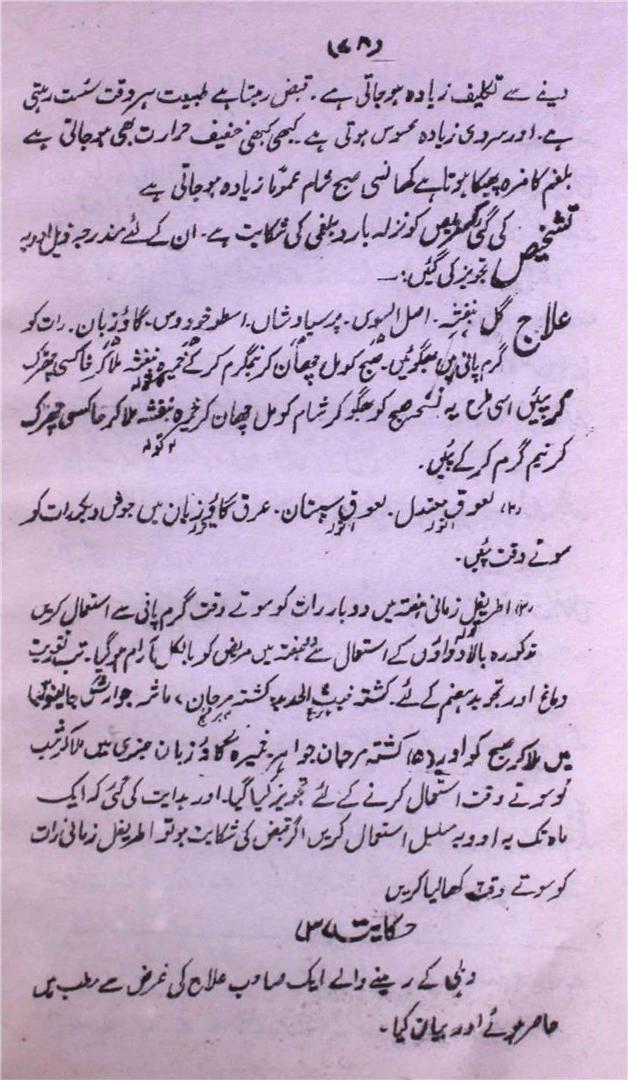 (۷۸)
دینے سے تکلیف زیادہ ہوجاتی ہے۔ قبض رہتا ہے طبیعت ہر وقت سُست رہتی
ہے۔ اور سردی زیادہ محسوس ہوتی ہے۔ کبھی کبھی خفیف حرارت بھی ہوجاتی ہے
بلغم کا مزہ پھیکا ہوتا ہے کھانسی صبح شام عموماً زیادہ ہوجاتی ہے
تشخیص کی گئی کہ مریض کو نزلہ بارد بلغمی کی شکایت ہے۔ ان کے لئے مندرجہ ذیل ادویہ
تجویز کی گئیں:۔
علاج گل بنفشہ۔ اصل السوس۔ پرسیاوشاں۔ اسطوخودوس۔ گاؤزبان۔ رات کو
گرم پانی میں بھگوئیں۔ صبح کو مل چھان کر نیم گرم کرکے خمیرہ بنفشہ ملا کر خاکسی چھڑک
کر پئیں اسی طرح یہ نسخہ صبح کو بھگو کر شام کو مل چھان کر خمیرہ بنفشہ ملا کر خاکسی چھڑک
۲ تولہ
کر نیم گرم کر کے پئیں۔
(۲) لعوق معتدل۔ لعوق سپستان۔ عرق گاؤزبان میں جوش دیکر رات کو
سوتے وقت پئیں۔
(۳) اطریفل زمانی ہفتہ میں دو بار رات کو سوتے وقت گرم پانی سے استعمال کریں
مذکورہ بالا دواؤں کے استعمال سے دو ہفتہ میں مریض کو بالکل آرام ہوگیا۔ تب تقویت
دماغ اور تجوید ہضم کے لئے۔ کشتہ خبث الحدید کشتہ مرجان، ماشہ جوارش جالینوس
میں ملا کر صبح کو اور (۵) کشتہ مرجان جواہر خمیرہ گاؤزبان عنبری میں ملا کر شب
کو سوتے وقت استعمال کرنے کے لئے تجویز کیا گیا۔ اور ہدایت کی گئی کہ ایک
ماہ تک یہ ادویہ مسلسل استعمال کریں اگر قبض کی شکایت ہو تو اطریفل زمانی رات
کو سوتے وقت کھالیا کریں
حکایت ۳۷
دہلی کے رہنے والے ایک صاحب علاج کی غرض سے مطب میں
حاضر ہوئے اور بیان کیا۔